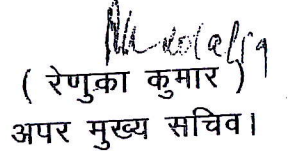 ( रेणुका कुमार )
अपर मुख्य सचिव।